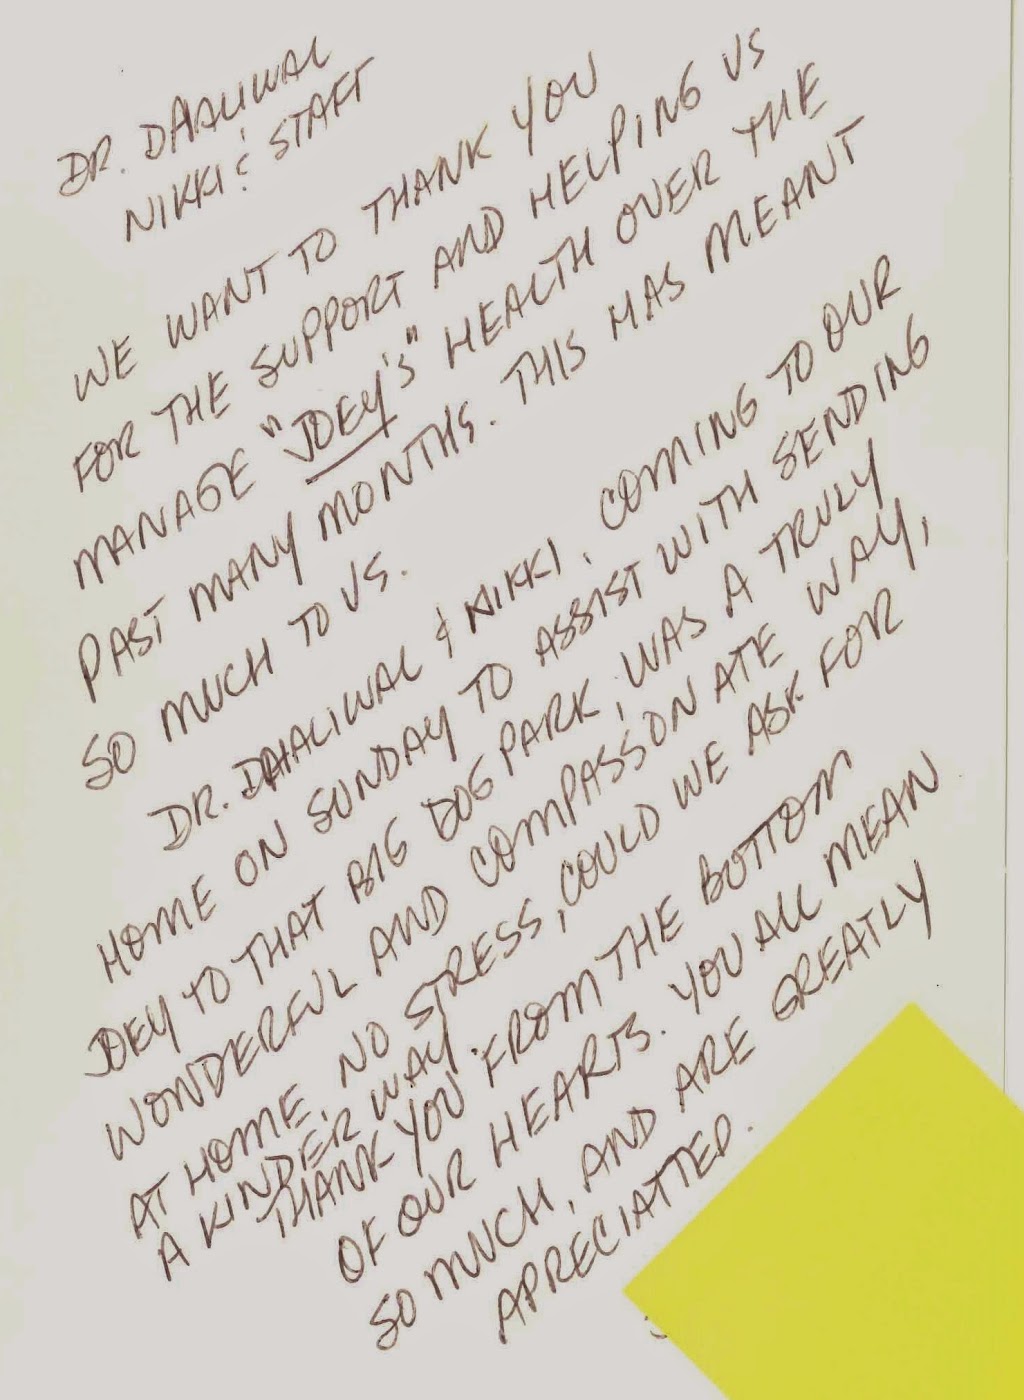 DR. DAHLIWAL
NIKKI & STAFF
WE WANT TO THANK YOU
FOR THE SUPPORT AND HELPING US
MANAGE "JOEY'S" HEALTH OVER THE
PAST MANY MONTHS. THIS HAS MEANT
SO MUCH TO US.
DR. DAHALIWAL & NIKKI, COMING TO OUR
HOME ON SUNDAY TO ASSIST WITH SENDING
JOEY TO THAT BIG DOG PARK, WAS A TRULY
WONDERFUL AND COMPASSIONATE WAY,
AT HOME, NO STRESS, COULD WE ASK FOR
A KINDER WAY.
THANK YOU FROM THE BOTTOM
OF OUR HEARTS. YOU ALL MEAN
SO MUCH, AND ARE GREATLY
APRECIATTED.